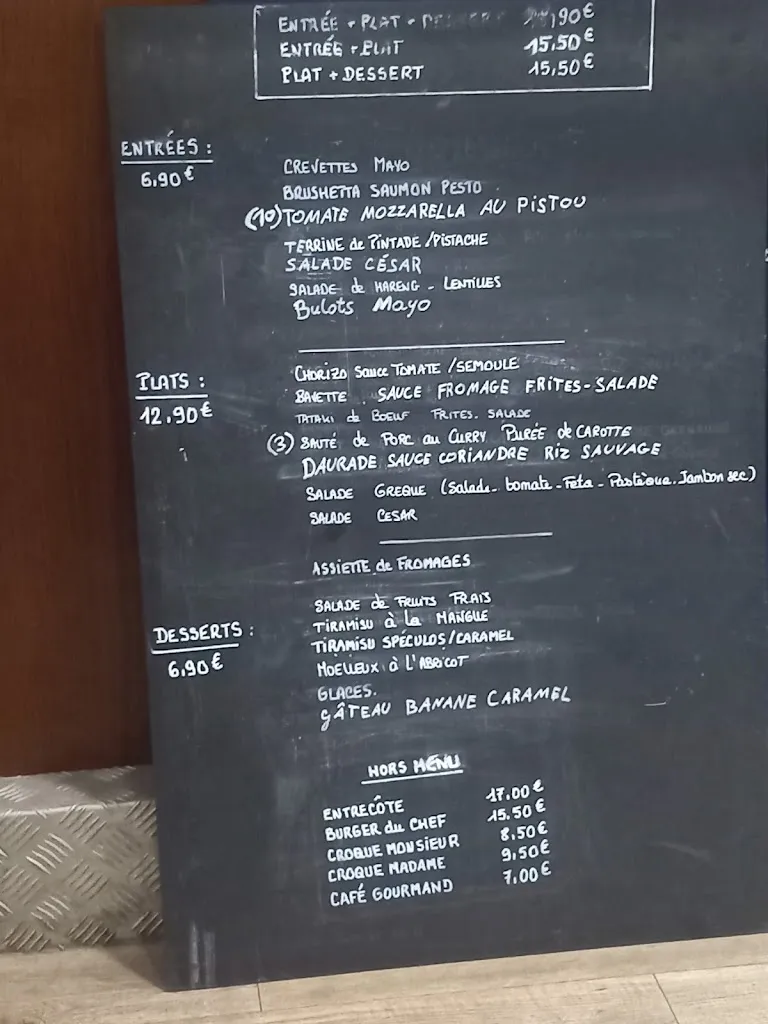 ENTRÉE + PLAT + DESSERT ,90€
ENTRÉE + PLAT 15.50€
PLAT + DESSERT 15,50€
ENTRÉES :
6,90€
CREVETTES MAYO
BRUSHETTA SAUMON PESTO
(10) TOMATE MOZZARELLA AU PISTOU
TERRINE de PINTADE / PISTACHE
SALADE CÉSAR
SALADE de HARENG - LENTILLES
Bulots Mayo
PLATS :
12.90€
CHORIZO Sauce TOMATE / SEMOULE
BAVETTE SAUCE FROMAGE FRITES - SALADE
TATAKI de BOEUF FRITES. SALADE
(3) SAUTÉ de PORC au CURRY PURÉE de CAROTTE
DAURADE SAUCE CORIANDRE RIZ SAUVAGE
SALADE GREQUE (Salade - tomate - Feta - Pastèque. Jambon sec)
SALADE CESAR
ASSIETTE de FROMAGES
DESSERTS :
6,90€
SALADE de FRUITS FRAIS
TIRAMISU à la MANGUE
TIRAMISU SPÉCULOS / CARAMEL
MOELLEUX à L'ABRICOT
GLACES.
GÂTEAU BANANE CARAMEL
HORS MENU
ENTRECÔTE 17.00€
BURGER du CHEF 15.50€
CROQUE MONSIEUR 8,50€
CROQUE MADAME 9,50€
CAFÉ GOURMAND 7.00€